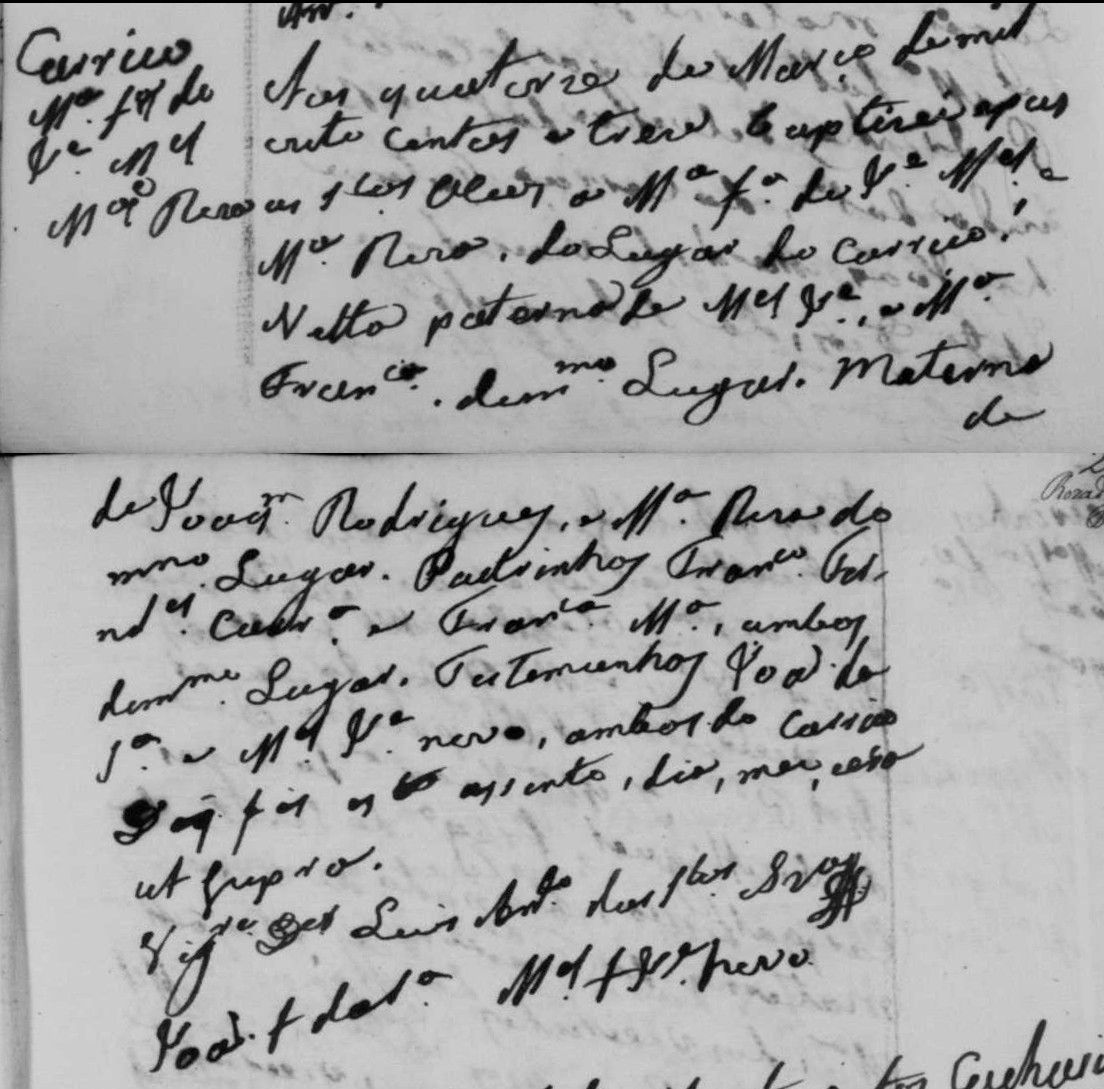 Carrico
Mª. fª de
Jᵉ Mᵉˡ
Mª Roza
Aos quatorze de Março de mil
oito centos e treze baptizei e pus
os Stos Oleos a Mª fª. de Jᵉ Mᵉˡ e
Mª. Roza. do Lugar do Carrico.
Netto paterno de Mᵉˡ Jᵉ., e Mª
Franᶜª. dem mᵐᵒ Lugar. Materno
de
de Joaqᵐ. Rodrigues, e Mª. Roza do
mmo. Lugar. Padrinhos Franᶜᵒ. Fer-
ndˢ. e Franᶜª Mª., ambos
dem mᵐᵒ. Lugar. Testemunhas Joaˢ. da
Sª. e Mᵉˡ Jᵉ. novo, ambos do Carrico
De q̃ fis este assento, dia, mes, e era
ut supra.
Vigʳᵒ Luis Anᵗᵒ. dos Stos Srª
Joaˢ. + da Sª Mᵉˡ. + Jᵉ. novo